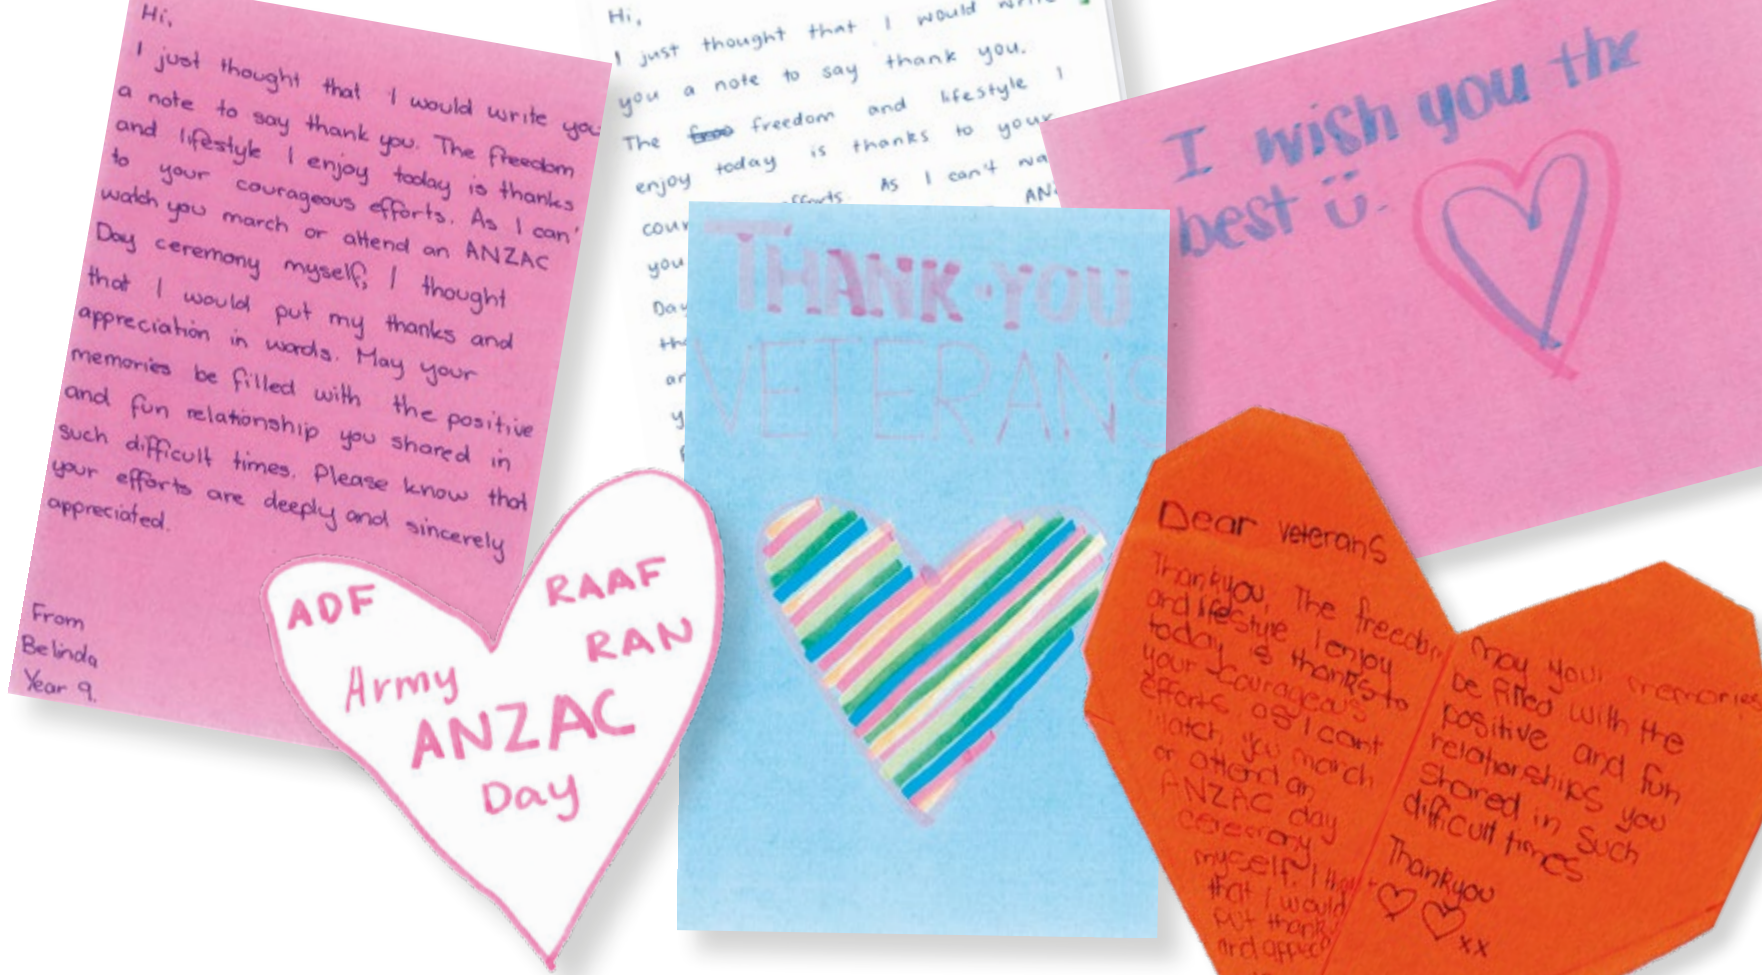 Hi,
I just thought that I would write you
a note to say thank you. The freedom
and lifestyle I enjoy today is thanks
to your courageous efforts. As I can'
watch you march or attend an ANZAC
Day ceremony myself, I thought
that I would put my thanks and
appreciation in words. May your
memories be filled with the positive
and fun relationship you shared in
such difficult times. Please know that
your efforts are deeply and sincerely
appreciated.
From
Belinda
Year 9.
Hi,
I just thought that I would write
you a note to say thank you.
The freedom and lifestyle I
enjoy today is thanks to your
cour efforts. As I can't wa
you AN
Day
tha
an
y
I wish you the
best ü.
THANK·YOU
VETERANS
ADF
RAAF
RAN
Army
ANZAC
Day
Dear veterans
Thankyou, The freedom
and lifestyle I enjoy
today is thanks to
your courageous
efforts as I cant
watch, you march
or attend an
ANZAC day
ceremony
myself. I tho
that I would
put thank
and apprec
may your memories
be filled with the
positive and fun
relationships you
shared in such
difficult times
Thankyou
xx